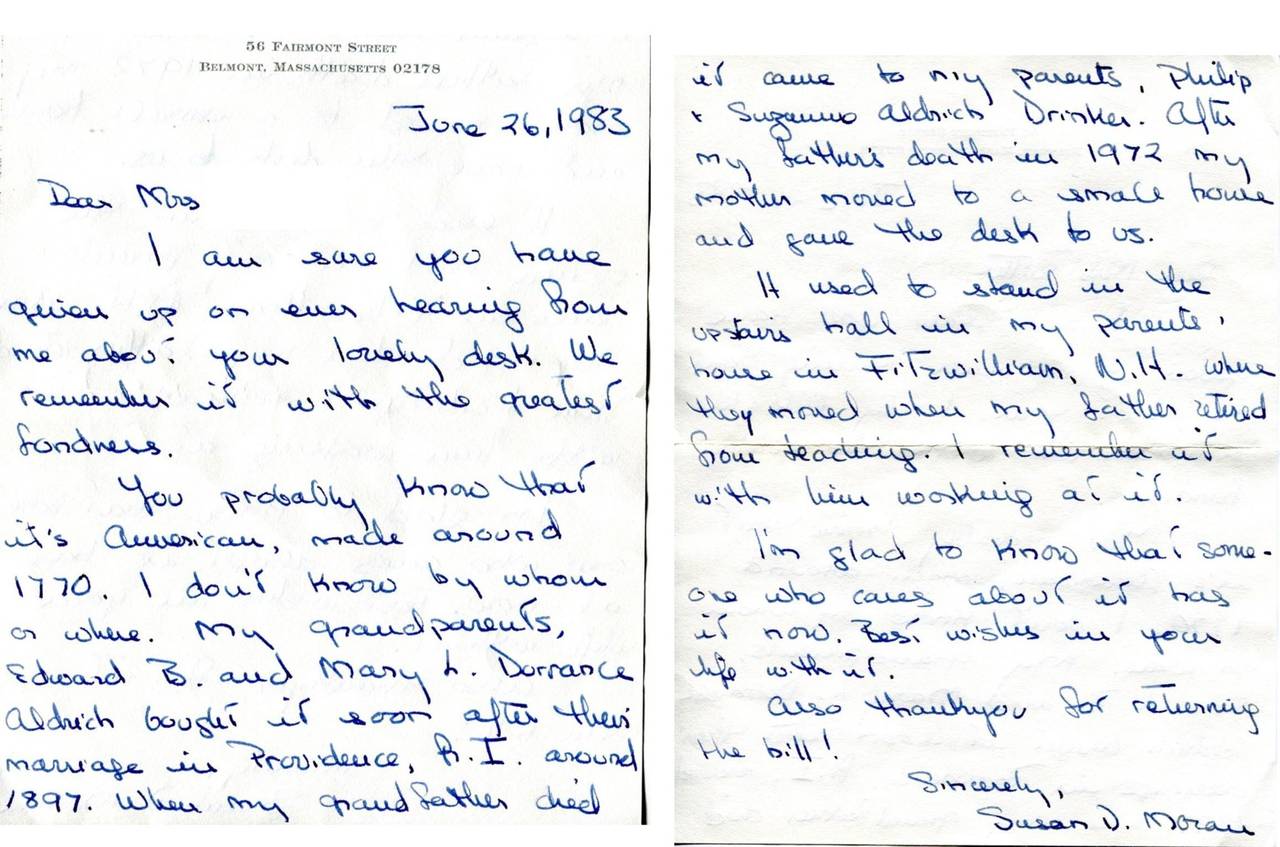 56 Fairmont Street
Belmont, Massachusetts 02178
June 26, 1983
Dear Mrs
I am sure you have
given up on ever hearing from
me about your lovely desk. We
remember it with the greatest
fondness.
You probably know that
it's American, made around
1770. I don't know by whom
or where. My grandparents,
Edward B. and Mary L. Dorrance
Aldrich bought it soon after their
marriage in Providence, R.I. around
1897. When my grandfather died
it came to my parents, Philip
+ Suzanne Aldrich Drinker. After
my father's death in 1972 my
mother moved to a small house
and gave the desk to us.
It used to stand in the
upstairs hall in my parents'
house in Fitzwilliam, N.H. where
they moved when my father retired
from teaching. I remember it
with him working at it.
I'm glad to know that some-
one who cares about it has
it now. Best wishes in your
life with it.
Also thankyou for returning
the bill!
Sincerely,
Susan D. Moran